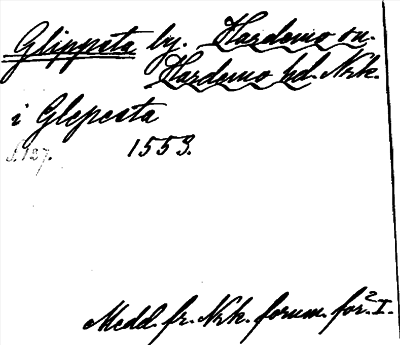 Glippsta by. Hardemo sn.
Hardemo hd. Nrk.
i Glepesta
s. 127. 1553.
Medd. fr. Nrk. fornm. för. 2 I.